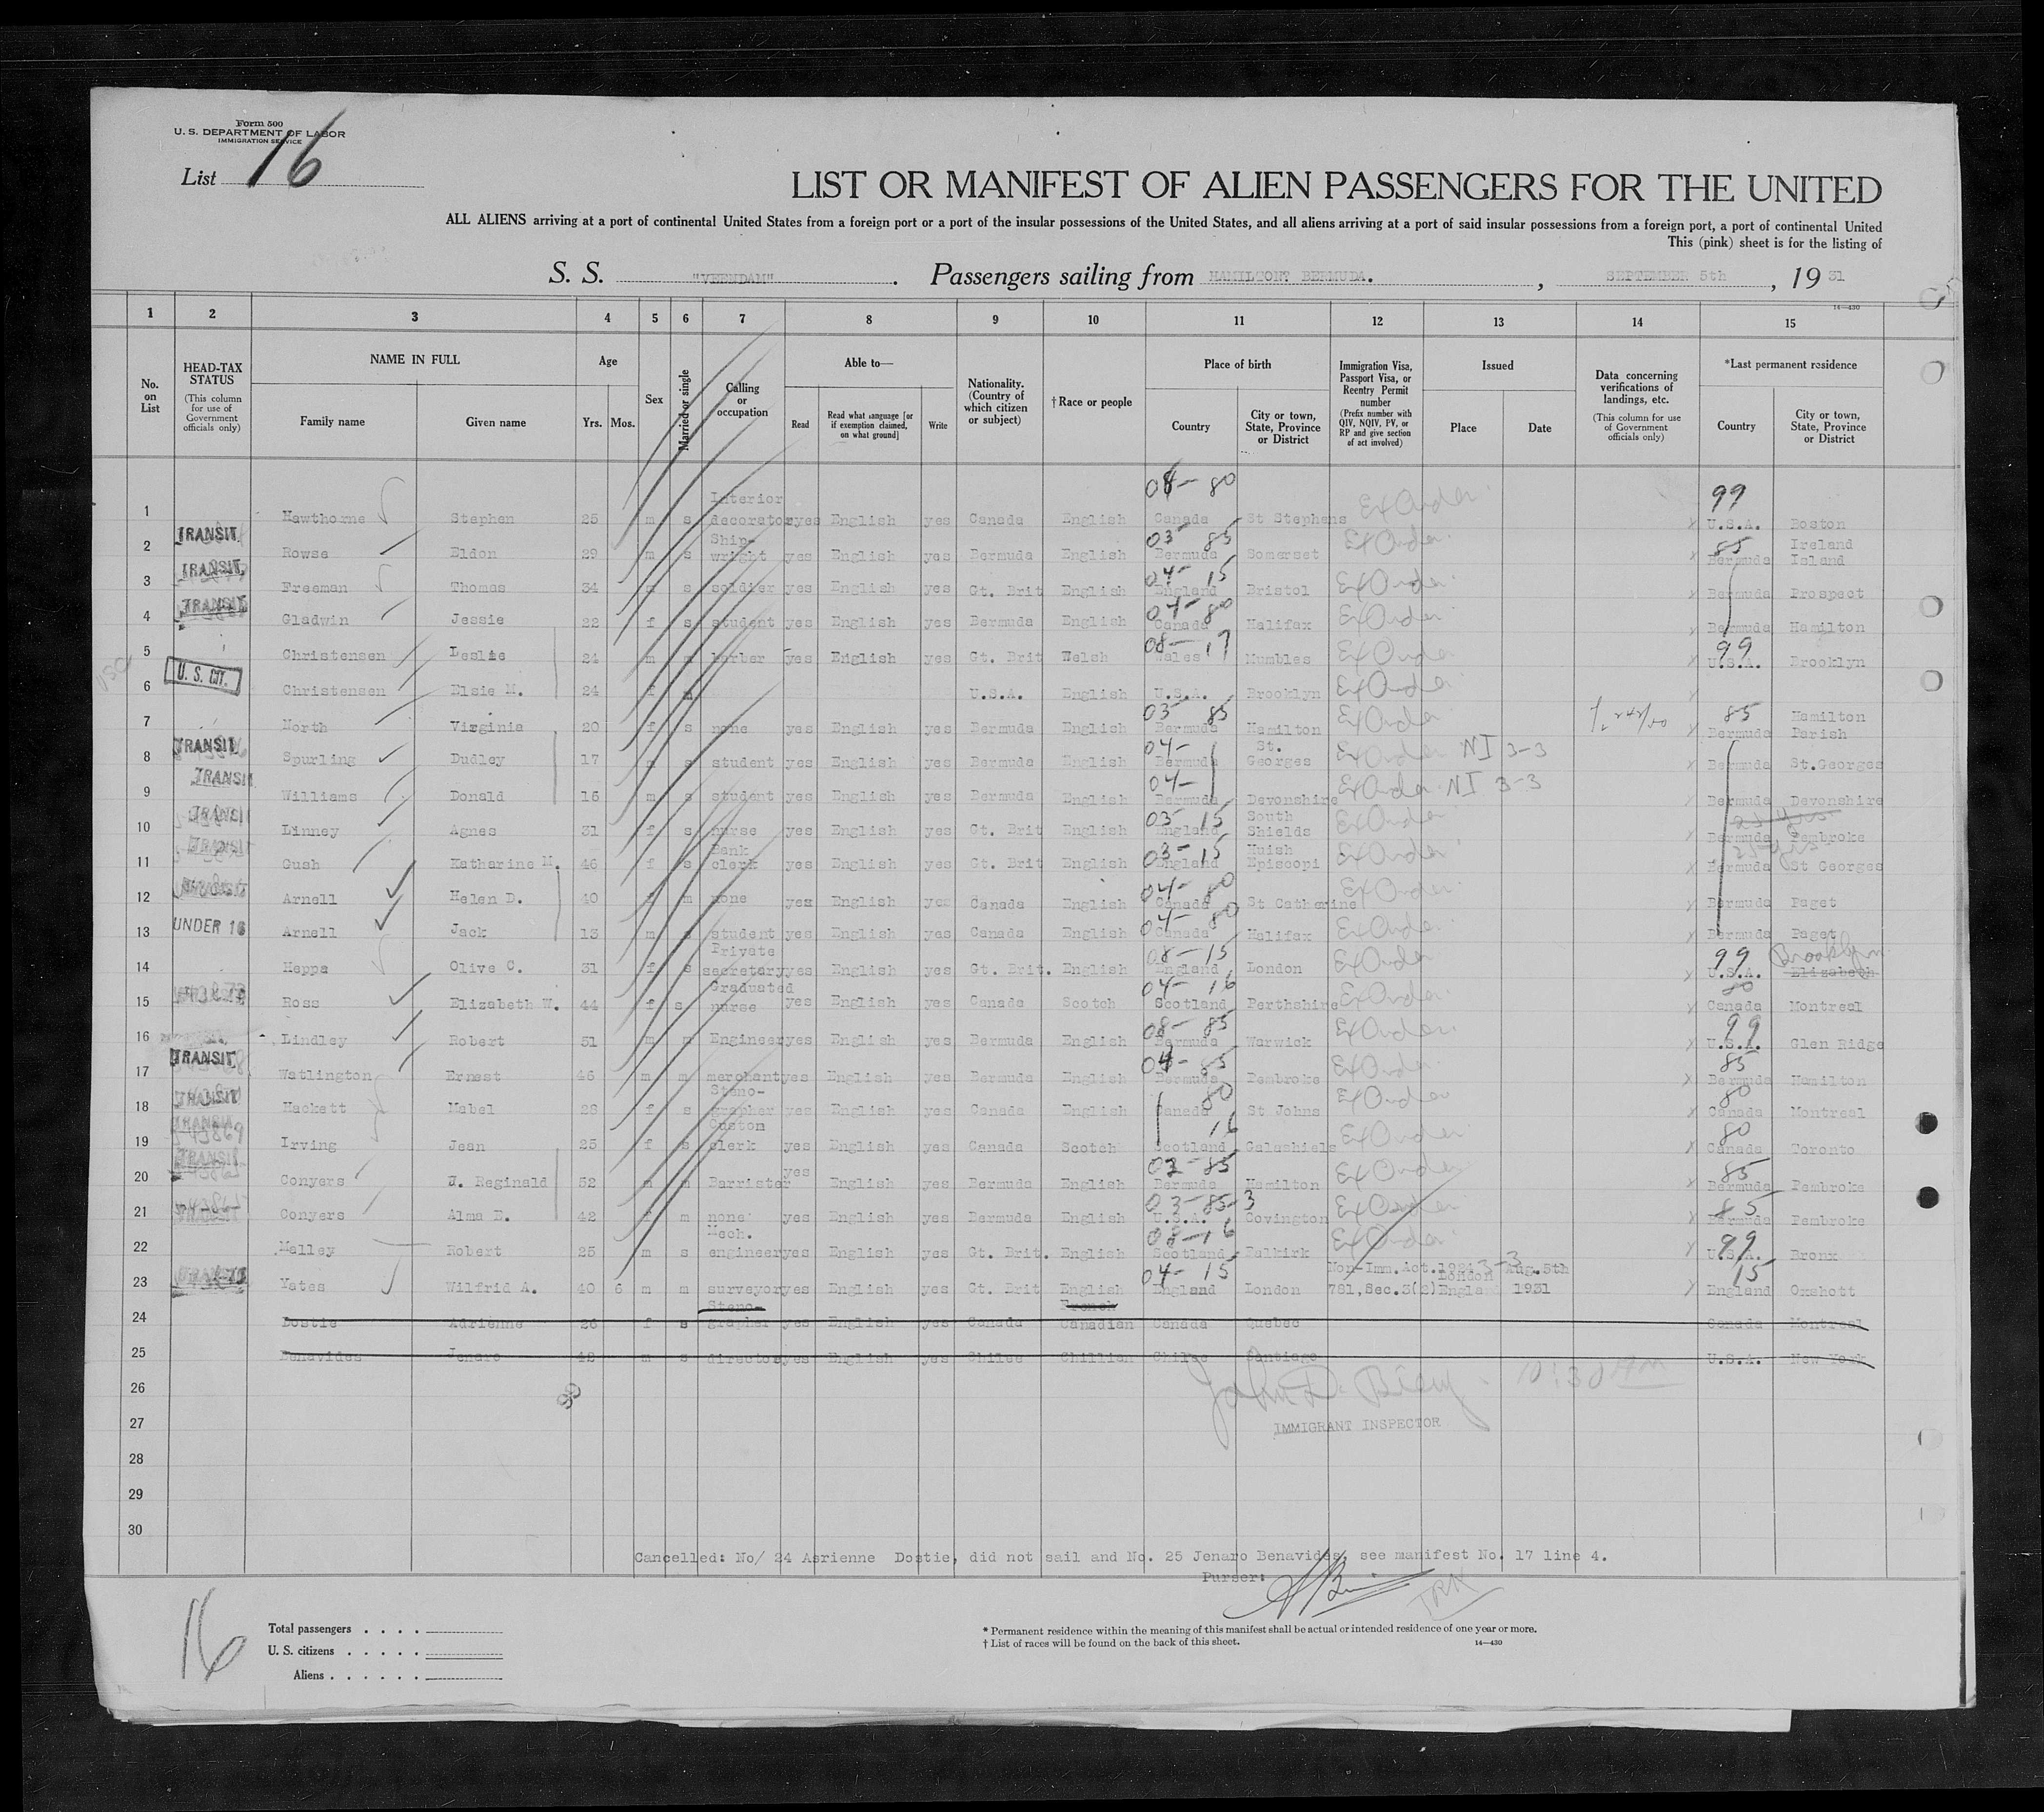 Form 500
U. S. DEPARTMENT OF LABOR
IMMIGRATION SERVICE
List 16
LIST OR MANIFEST OF ALIEN PASSENGERS FOR THE UNITED
ALL ALIENS arriving at a port of continental United States from a foreign port or a port of the insular possessions of the United States, and all aliens arriving at a port of said insular possessions from a foreign port, a port of continental United
This (pink) sheet is for the listing of
S. S. "VEENDAM". Passengers sailing from HAMILTON? BERMUDA., SEPTEMBER 5th, 19 31
14—430
1 2 3 4 5 6 7 8 9 10 11 12 13 14 15
No. on List
HEAD-TAX STATUS (This column for use of Government officials only)
NAME IN FULL Family name Given name
Age Yrs. Mos.
Sex
Married or single
Calling or occupation
Able to— Read Read what language [or if exemption claimed, on what ground] Write
Nationality. (Country of which citizen or subject)
†Race or people
Place of birth Country City or town, State, Province or District
Immigration Visa, Passport Visa, or Reentry Permit number (Prefix number with QIV, NQIV, PV, or RP and give section of act involved)
Issued Place Date
Data concerning verifications of landings, etc. (This column for use of Government officials only)
*Last permanent residence Country City or town, State, Province or District
1 Hawthorne Stephen 25 m s Interior decorator yes English yes Canada English 08-80 Canada St Stephens Ex Order 99 x U.S.A. Boston
2 TRANSIT. Rowse Eldon 29 m s Ship-wright yes English yes Bermuda English 03 85 Bermuda Somerset Ex Order 85 x Bermuda Ireland Island
3 TRANSIT. Freeman Thomas 34 m s soldier yes English yes Gt. Brit English 04-15 England Bristol Ex Order x Bermuda Prospect
4 TRANSIT Gladwin Jessie 22 f s student yes English yes Bermuda English 04-80 Canada Halifax Ex Order x Bermuda Hamilton
5 Christensen Leslie 24 m m barber yes English yes Gt. Brit Welsh 08-17 Wales Mumbles Ex Order 99 x U.S.A. Brooklyn
6 USC U. S. CIT. Christensen Elsie M. 24 f m U.S.A. English U.S.A. Brooklyn Ex Order
7 North Virginia 20 f s none yes English yes Bermuda English 03 85 Bermuda Hamilton Ex Order 85 x Bermuda Hamilton Parish
8 TRANSIT Spurling Dudley 17 m s student yes English yes Bermuda English 04- Bermuda St. Georges Ex Order NI 3-3 x Bermuda St.Georges
9 TRANSIT Williams Donald 16 m s student yes English yes Bermuda English 04- Bermuda Devonshire Ex Order NI 3-3 Bermuda Devonshire
10 TRANSIT Linney Agnes 31 f s nurse yes English yes Gt. Brit English 03-15 England South Shields Ex Order x Bermuda Pembroke
11 TRANSIT Gush Katharine M. 46 f s Bank clerk yes English yes Gt. Brit English 03-15 England Huish Episcopi Ex Order x Bermuda St Georges
12 Arnell Helen D. 40 f m none yes English yes Canada English 04-80 Canada St Catherine Ex Order x Bermuda Paget
13 UNDER 16 Arnell Jack 13 m s student yes English yes Canada English 04-80 Canada Halifax Ex Order x Bermuda Paget
14 Heppa Olive C. 31 f s Private secretary yes English yes Gt. Brit. English 08-15 England London Ex Order 99 x U.S.A. Brooklyn Elizabeth
15 Ross Elizabeth W. 44 f s Graduated nurse yes English yes Canada Scotch 04-16 Scotland Perthshire Ex Order 80 x Canada Montreal
16 Lindley Robert 51 m m Engineer yes English yes Bermuda English 08-85 Bermuda Warwick Ex Order 99 x U.S.A. Glen Ridge
17 TRANSIT. Watlington Ernest 46 m m merchant yes English yes Bermuda English 04-85 Bermuda Pembroke Ex Order 85 x Bermuda Hamilton
18 TRANSIT Hackett Mabel 28 f s Steno-grapher yes English yes Canada English 80 Canada St Johns Ex Order 80 x Canada Montreal
19 TRANSIT Irving Jean 25 f s Custom clerk yes English yes Canada Scotch 16 Scotland Galashiels Ex Order 80 x Canada Toronto
20 TRANSIT Conyers J. Reginald 52 m m Barrister yes English yes Bermuda English 03-85 Bermuda Hamilton Ex Order 85 x Bermuda Pembroke
21 Conyers Alma E. 42 f m none yes English yes Bermuda English 03-85-3 U.S.A. Covington Ex Order 85 x Bermuda Pembroke
22 Malley Robert 25 m s Mech. engineer yes English yes Gt. Brit. English 08-16 Scotland Falkirk Ex Order 99 U.S.A. Bronx
23 Yates Wilfrid A. 40 6 m m surveyor yes English yes Gt. Brit English 04-15 England London Non-Imm.Act.1924 781,Sec.3(2) 3-3 London England Aug.5th 1931 15 England Oxshott
24 Dostie Adrienne 26 f s Steno-grapher yes English yes Canada French Canadian Canada Quebec Canada Montreal
25 Benavides Jenaro 42 m s director yes English yes Chilee Chillian Chile Santiago U.S.A. New York
26
27
28
29
30
John D. 10:30 AM
IMMIGRANT INSPECTOR
Cancelled: No/ 24 Asrienne Dostie, did not sail and No. 25 Jenaro Benavides, see manifest No. 17 line 4.
Purser:
16
Total passengers
U. S. citizens
Aliens
* Permanent residence within the meaning of this manifest shall be actual or intended residence of one year or more.
† List of races will be found on the back of this sheet.
14—430